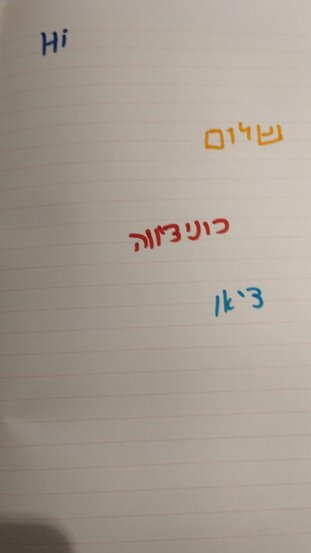 Hi
שלום
כוניצ'ווה
צ'או